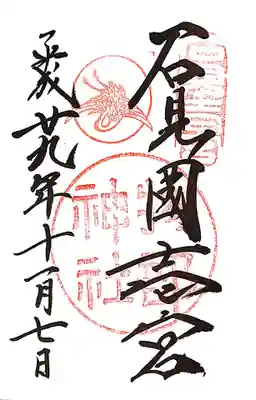 石見國壹宮
物部
神社
平成廿九年十一月七日